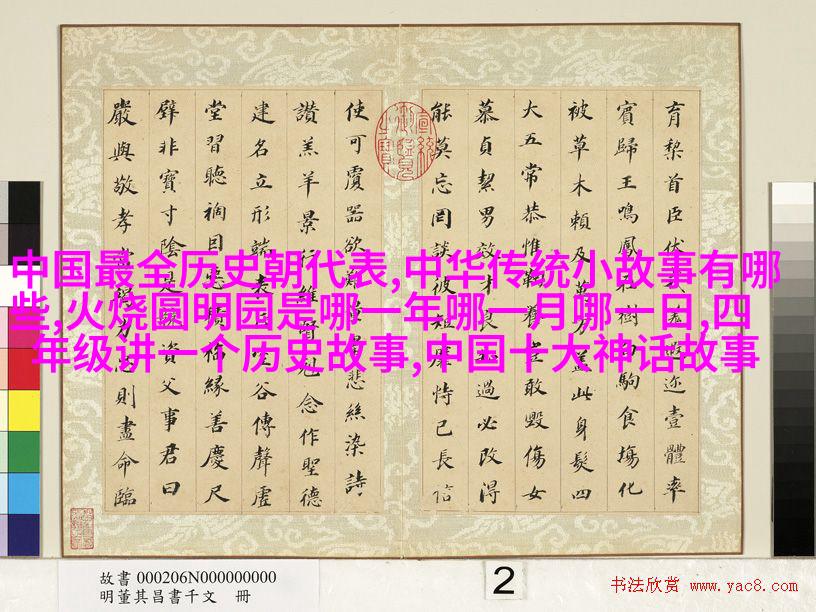 育黎首臣伏戎羌遐迩壹體率
賓歸王鳴鳳在樹白駒食場化
被草木賴及萬方蓋此身髮四
大五常恭惟鞠養豈敢毀傷女
慕貞絜男效才良知過必改得
能莫忘罔談彼短靡恃己長信
使可覆器欲難量墨悲絲染詩
讚羔羊景行維賢剋念作聖德
建名立形端表正空谷傳聲虛
堂習聽禍因惡積福緣善慶尺
璧非寶寸陰是競資父事君曰
嚴與敬孝當竭力忠則盡命臨
宣統御覽之寶
中国最全历史朝代表,中华传统小故事有哪
些,火烧圆明园是哪一年哪一月哪一日,四
年级讲一个历史故事,中国十大神话故事
故書 000206N000000000
明董其昌書千文 冊
2
书法欣赏 www.yac8.com